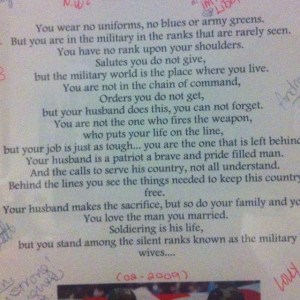 N.W.
You wear no uniforms, no blues or army greens.
But you are in the military in the ranks that are rarely seen.
You have no rank upon your shoulders.
Salutes you do not give,
but the military world is the place where you live.
You are not in the chain of command,
Orders you do not get,
but your husband does this, you can not forget.
You are not the one who fires the weapon,
who puts your life on the line,
but your job is just as tough... you are the one that is left behind
Your husband is a patriot a brave and pride filled man.
And the calls to serve his country, not all understand.
Behind the lines you see the things needed to keep this country
free.
Your husband makes the sacrifice, but so do your family and yo
You love the man you married.
Soldiering is his life,
but you stand among the silent ranks known as the military
wives....
strong
(OR-2009)